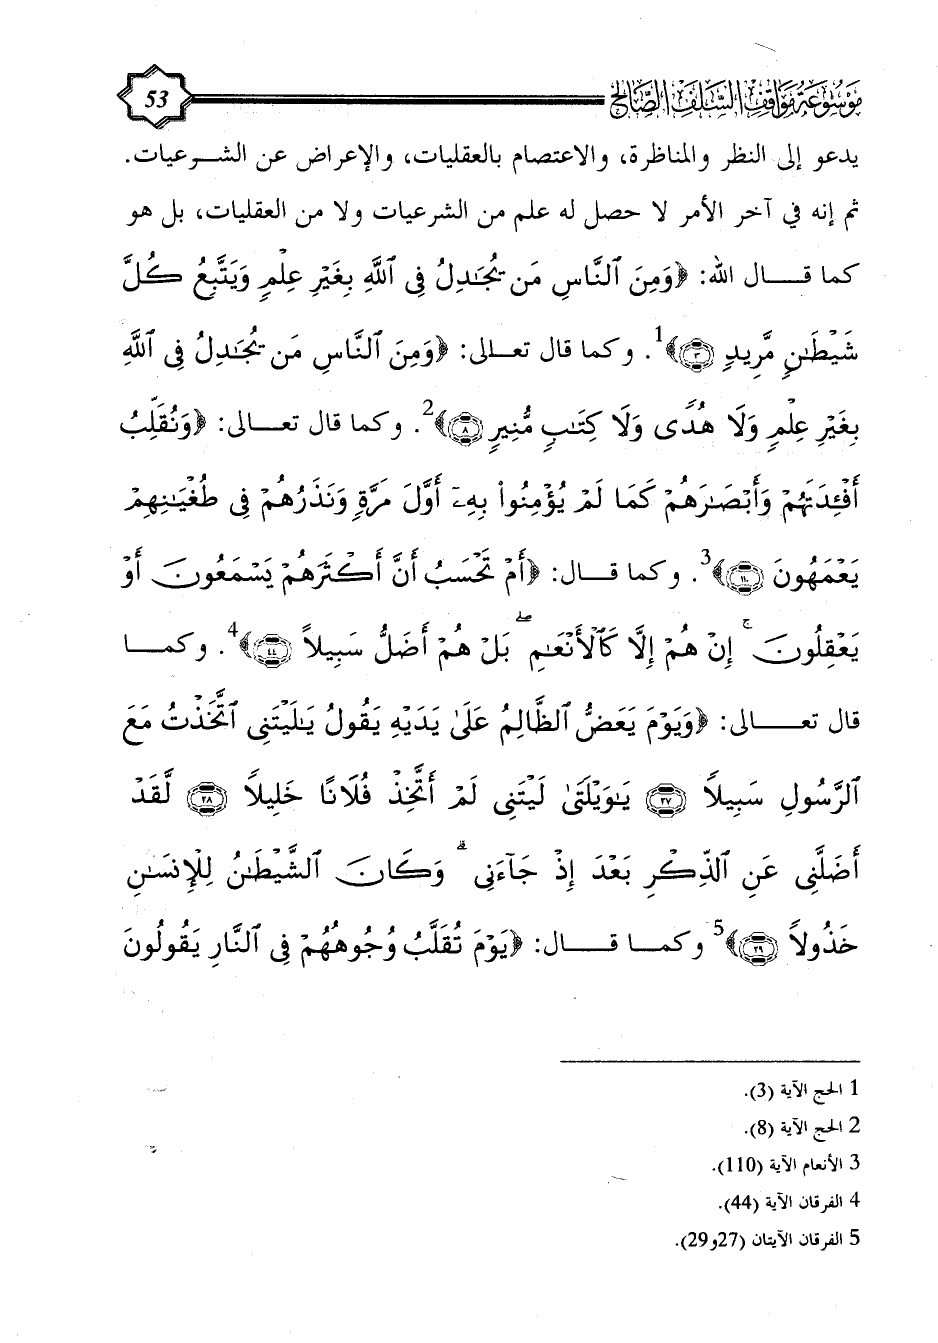 موسوعة مواقف السلف الصالح
53
يدعو إلى النظر والمناظرة، والاعتصام بالعقليات، والإعراض عن الشرعيات.
ثم إنه في آخر الأمر لا حصل له علم من الشرعيات ولا من العقليات، بل هو
كما قال الله: ﴿وَمِنَ ٱلنَّاسِ مَن يُجَـٰدِلُ فِى ٱللَّهِ بِغَيْرِ عِلْمٍ وَيَتَّبِعُ كُلَّ
شَيْطَـٰنٍ مَّرِيدٍ ٣﴾1. وكما قال تعالى: ﴿وَمِنَ ٱلنَّاسِ مَن يُجَـٰدِلُ فِى ٱللَّهِ
بِغَيْرِ عِلْمٍ وَلَا هُدًى وَلَا كِتَـٰبٍ مُّنِيرٍ ٨﴾2. وكما قال تعالى: ﴿وَنُقَلِّبُ
أَفْـِٔدَتَهُمْ وَأَبْصَـٰرَهُمْ كَمَا لَمْ يُؤْمِنُوا۟ بِهِۦٓ أَوَّلَ مَرَّةٍ وَنَذَرُهُمْ فِى طُغْيَـٰنِهِمْ
يَعْمَهُونَ ١١٠﴾3. وكما قال: ﴿أَمْ تَحْسَبُ أَنَّ أَكْثَرَهُمْ يَسْمَعُونَ أَوْ
يَعْقِلُونَ ۚ إِنْ هُمْ إِلَّا كَٱلْأَنْعَـٰمِ ۖ بَلْ هُمْ أَضَلُّ سَبِيلاً ٤٤﴾4. وكما
قال تعالى: ﴿وَيَوْمَ يَعَضُّ ٱلظَّالِمُ عَلَىٰ يَدَيْهِ يَقُولُ يَـٰلَيْتَنِى ٱتَّخَذْتُ مَعَ
ٱلرَّسُولِ سَبِيلاً ٢٧ يَـٰوَيْلَتَىٰ لَيْتَنِى لَمْ أَتَّخِذْ فُلَانًا خَلِيلاً ٢٨ لَّقَدْ
أَضَلَّنِى عَنِ ٱلذِّكْرِ بَعْدَ إِذْ جَآءَنِى ۗ وَكَانَ ٱلشَّيْطَـٰنُ لِلْإِنسَـٰنِ
خَذُولاً ٢٩﴾5 وكما قال: ﴿يَوْمَ تُقَلَّبُ وُجُوهُهُمْ فِى ٱلنَّارِ يَقُولُونَ
1 الحج الآية (3).
2 الحج الآية (8).
3 الأنعام الآية (110).
4 الفرقان الآية (44).
5 الفرقان الآيتان (27و29).